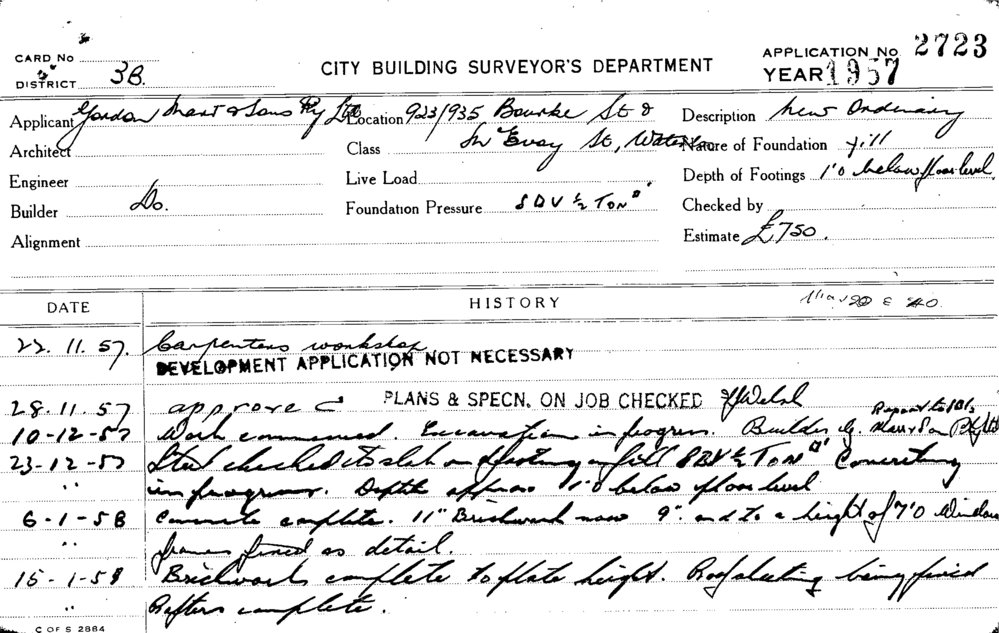 CARD No
APPLICATION No 2723
DISTRICT 3B.
CITY BUILDING SURVEYOR'S DEPARTMENT
YEAR 1957
Applicant Gordon & Sons Pty Ltd Location 923/935 Bourke St &
Description New Ordinary
Architect
Class McEvoy St, Waterloo
Nature of Foundation fill
Engineer
Live Load
Depth of Footings 1'0 below floor level.
Builder Do.
Foundation Pressure SBV ½ TON □'
Checked by
Alignment
Estimate £750.
DATE
HISTORY
22. 11. 57. Carpenters workshop
DEVELOPMENT APPLICATION NOT NECESSARY
28. 11. 57 approved PLANS & SPECN. ON JOB CHECKED
10-12-57 Work commenced. Excavation in progress. Builder G. & Son Pty Ltd
23-12-57 Steel checked to slab and footing on fill SBV ½ TON □' Concreting
" in progress. Depth approx 1'0 below floor level
6-1-58 Concrete complete. 11" Brickwork now 9". and to a height of 7'0 Window
" frames fixed as detail.
15-1-58 Brickwork complete to plate height. Roof sheeting being fixed
" Rafters complete.
C OF S 2884